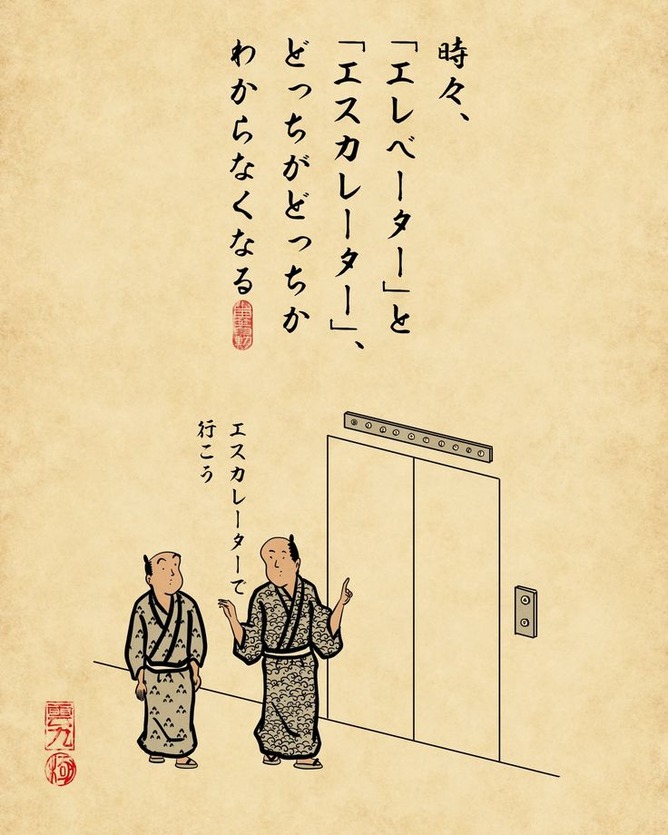 時々、
「エレベーター」と
「エスカレーター」、
どっちがどっちか
わからなくなる
エスカレーターで
行こう